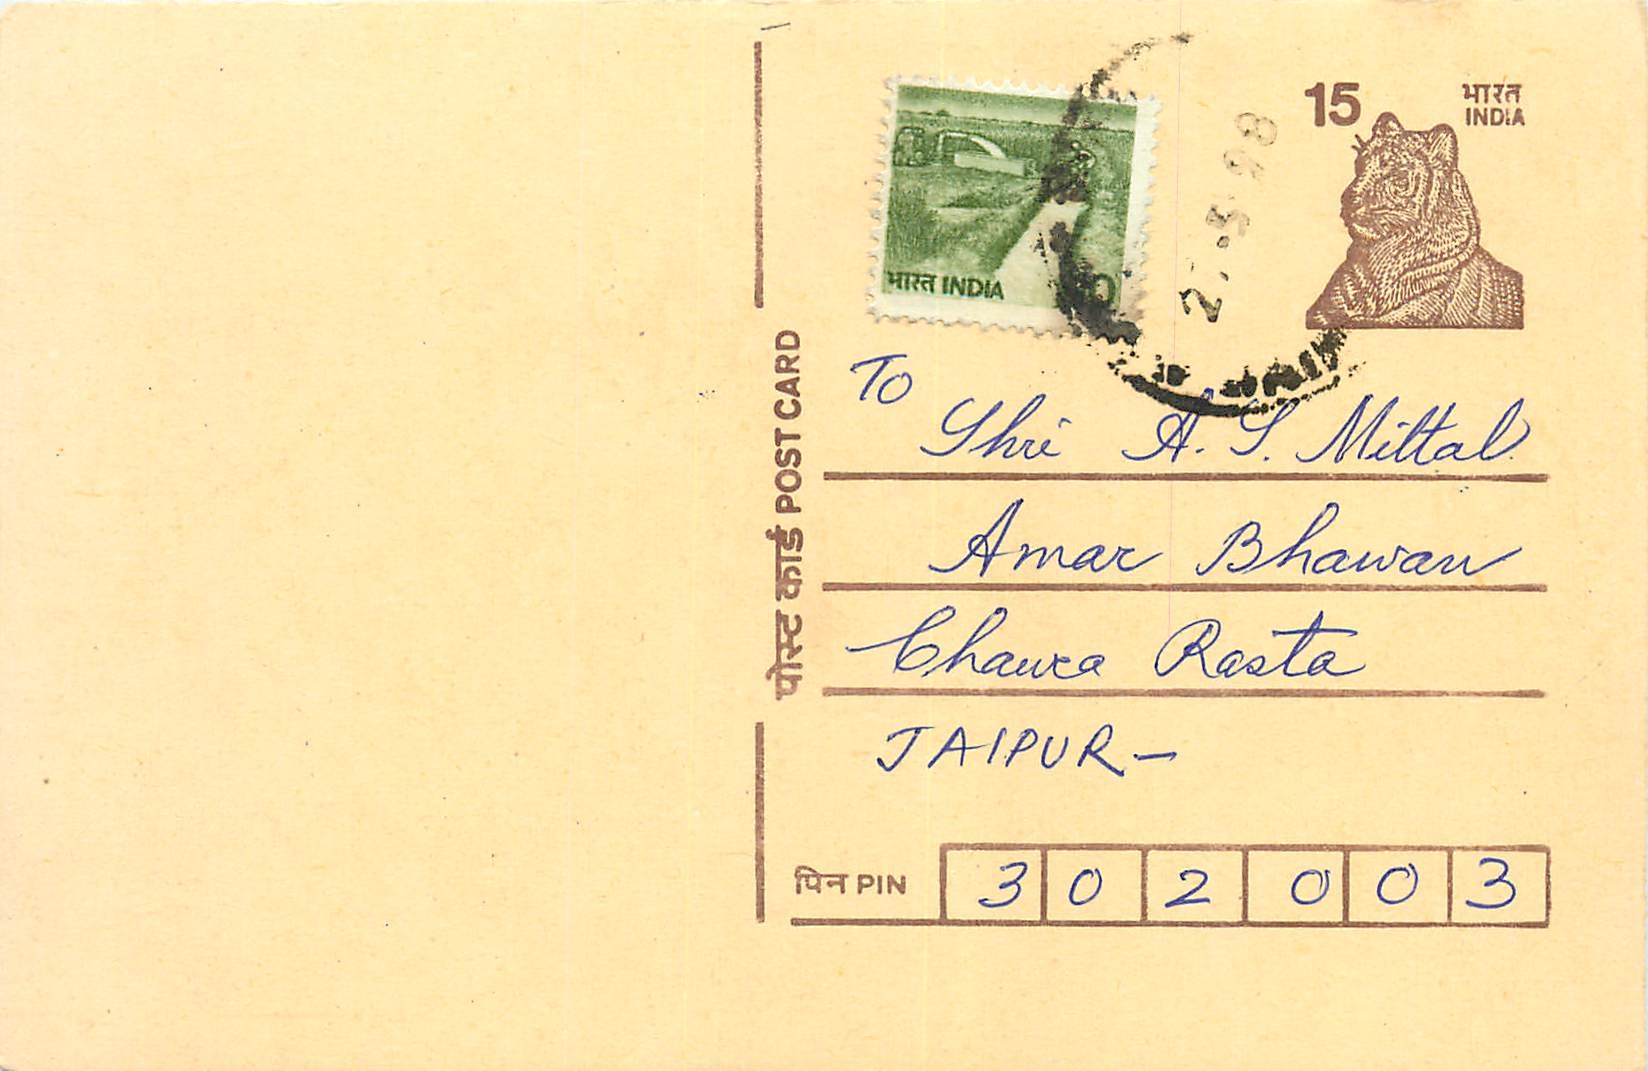 15
भारत
INDIA
भारत INDIA
पोस्ट कार्ड POST CARD
To
Shri A. S. Mittal
Amar Bhawan
Chaura Rasta
JAIPUR-
पिन PIN 302003